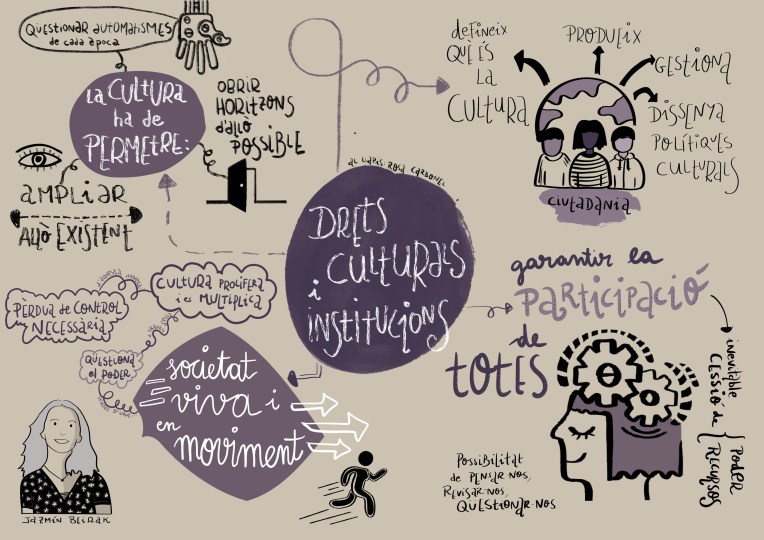 QUESTIONAR AUTOMATISMES
de cada època
LA CULTURA
ha de
PERMETRE:
OBRIR
HORITZONS
d'allò
POSSIBLE
AMPLIAR
ALLÒ EXISTENT
defineix
QUÈ ÉS
LA
CULTURA
PRODUEIX
GESTIONA
DISSENYA
POLÍTIQUES
CULTURALS
CIUTADANIA
AL LLAPIS: ROSA CARBONELL
DRETS
CULTURALS
i
INSTITUCIONS
garantir la
PARTICIPACIÓ
de
TOTES
inevitable
CESSIÓ de
PODER
RECURSOS
POSSIBILITAT
de PENSAR-NOS,
REVISAR-NOS,
QÜESTIONAR-NOS
CULTURA PROLÍFERA
i és MÚLTIPLICA
PÈRDUA de CONTROL
NECESSÀRIA
QÜESTIONA
el PODER
societat
viva i
en
moviment
JAZMÍN BEIRAK